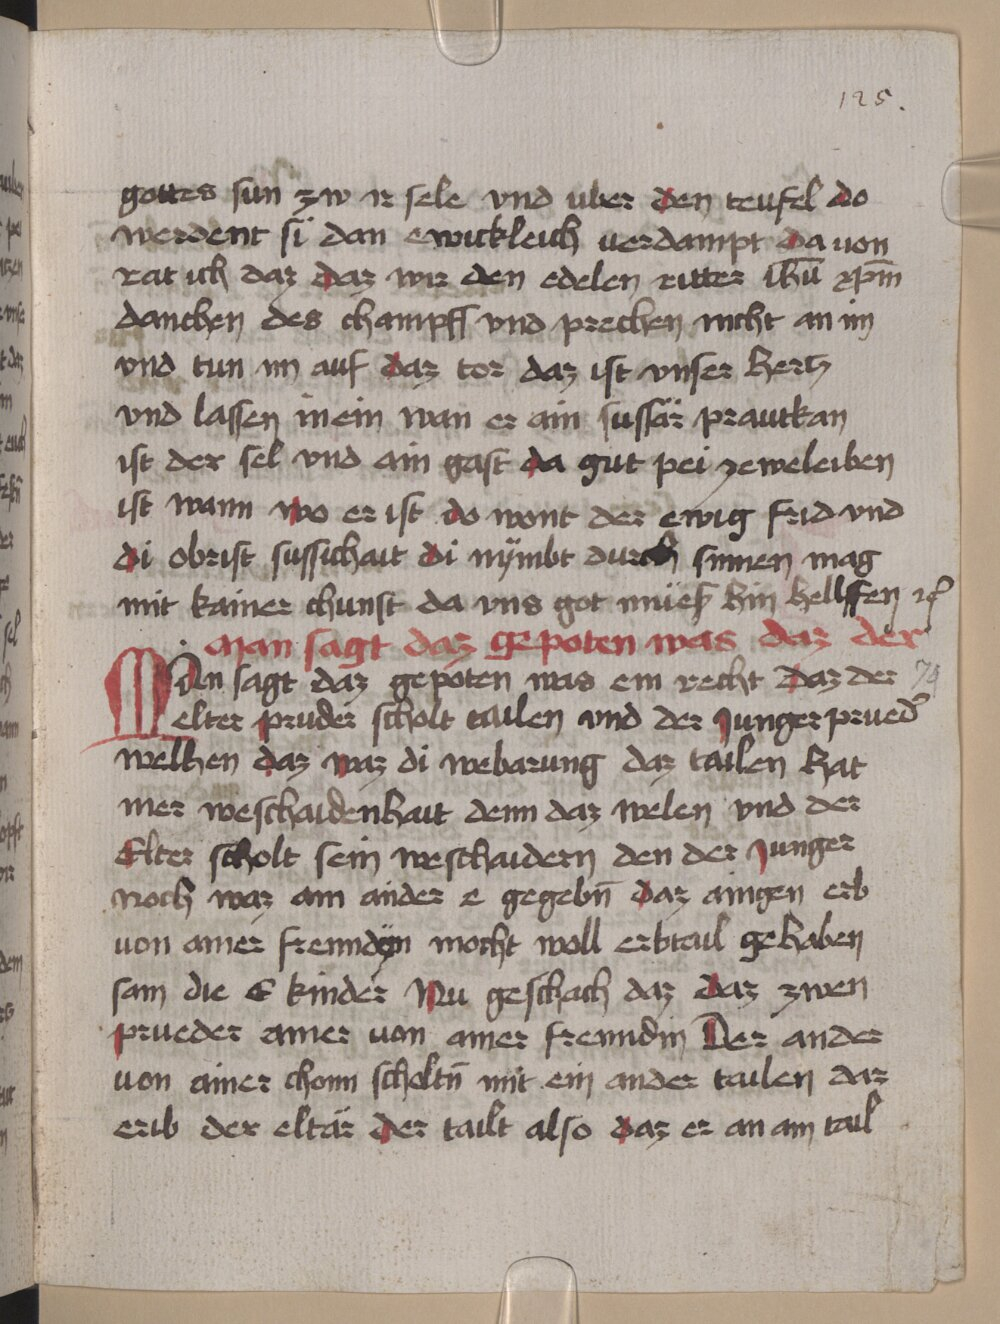 125.
gottes sun zw ir sele vnd uber den teufel do
werdent si dan ewickleich uerdampt da uon
rat ich daz daz wir den edelen ritter ihū xpm̄
danchen des champff vnd prechen nicht an im
vnd tun im auf daz tor daz ist vnser hertz
vnd lassen in ein wan er ain sussär prautkan
ist der sel vnd ain gast da gut pei zeweleiben
ist wann wo er ist do wont der ewig frid vnd
di obrist sussichait di nÿmbt durch sinnen mag
mit kainer chunst da vns got müess hin hellffen
Man sagt daz gepoten was daz der
Man sagt daz gepoten was ein recht daz der 74
elter pruder scholt tailen vnd der Junger prued
welhen daz waz di webarung daz tailen hat
mer weschaidenhait denn daz welen vnd der
Elter scholt sein weschaidern den der Junger
noch waz ain ander e gegebn̄ daz aingen erb
uon ainer freundÿn mocht woll erbtail gehaben
sam die E kinder Nu geschach daz daz zwen
prueder ainer uon ainer freundin Der ander
uon ainer chonn scholtn̄ mit ein ander tailen daz
erib der eltär der tailt also daz er an ain tail